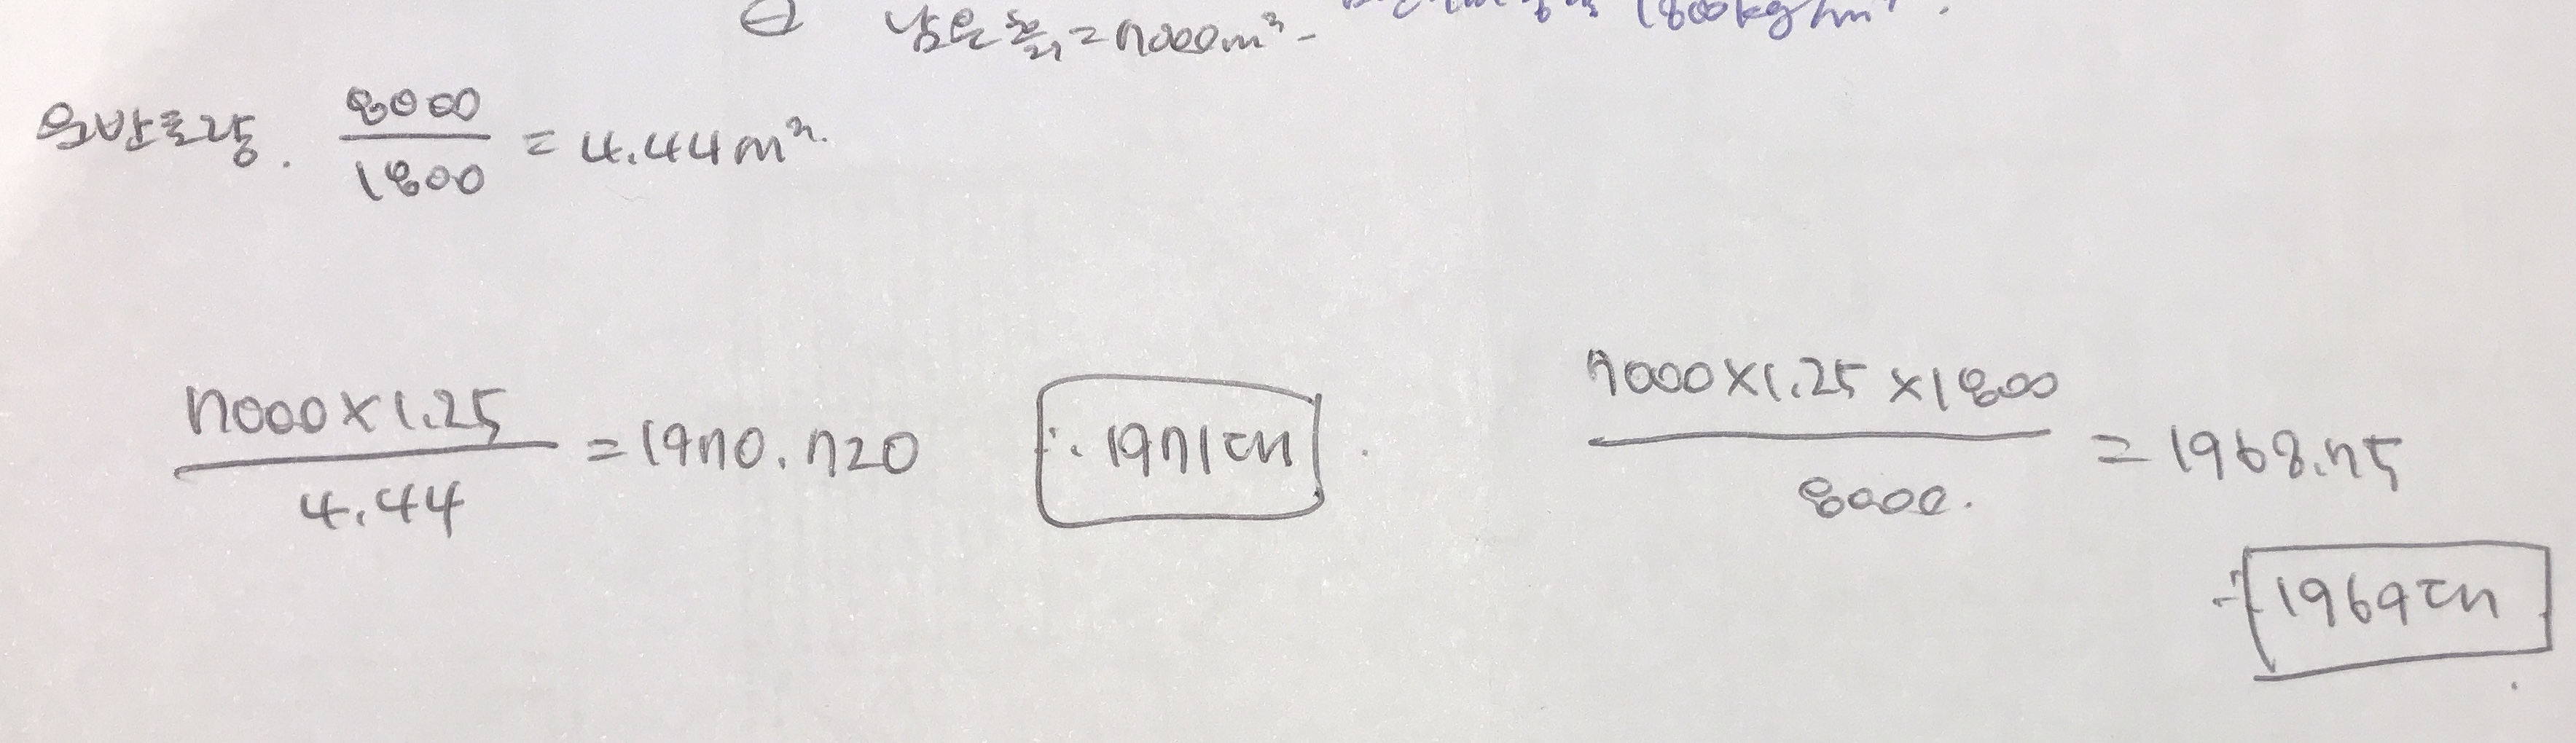 남은 흙 = 7000m³
1800kg/m³.
운반토량. 8000/1800 = 4.44m³.
7000×1.25/4.44 = 1970.720 ∴ 1971대
7000×1.25×1800/8000. = 1968.75
∴ 1969대